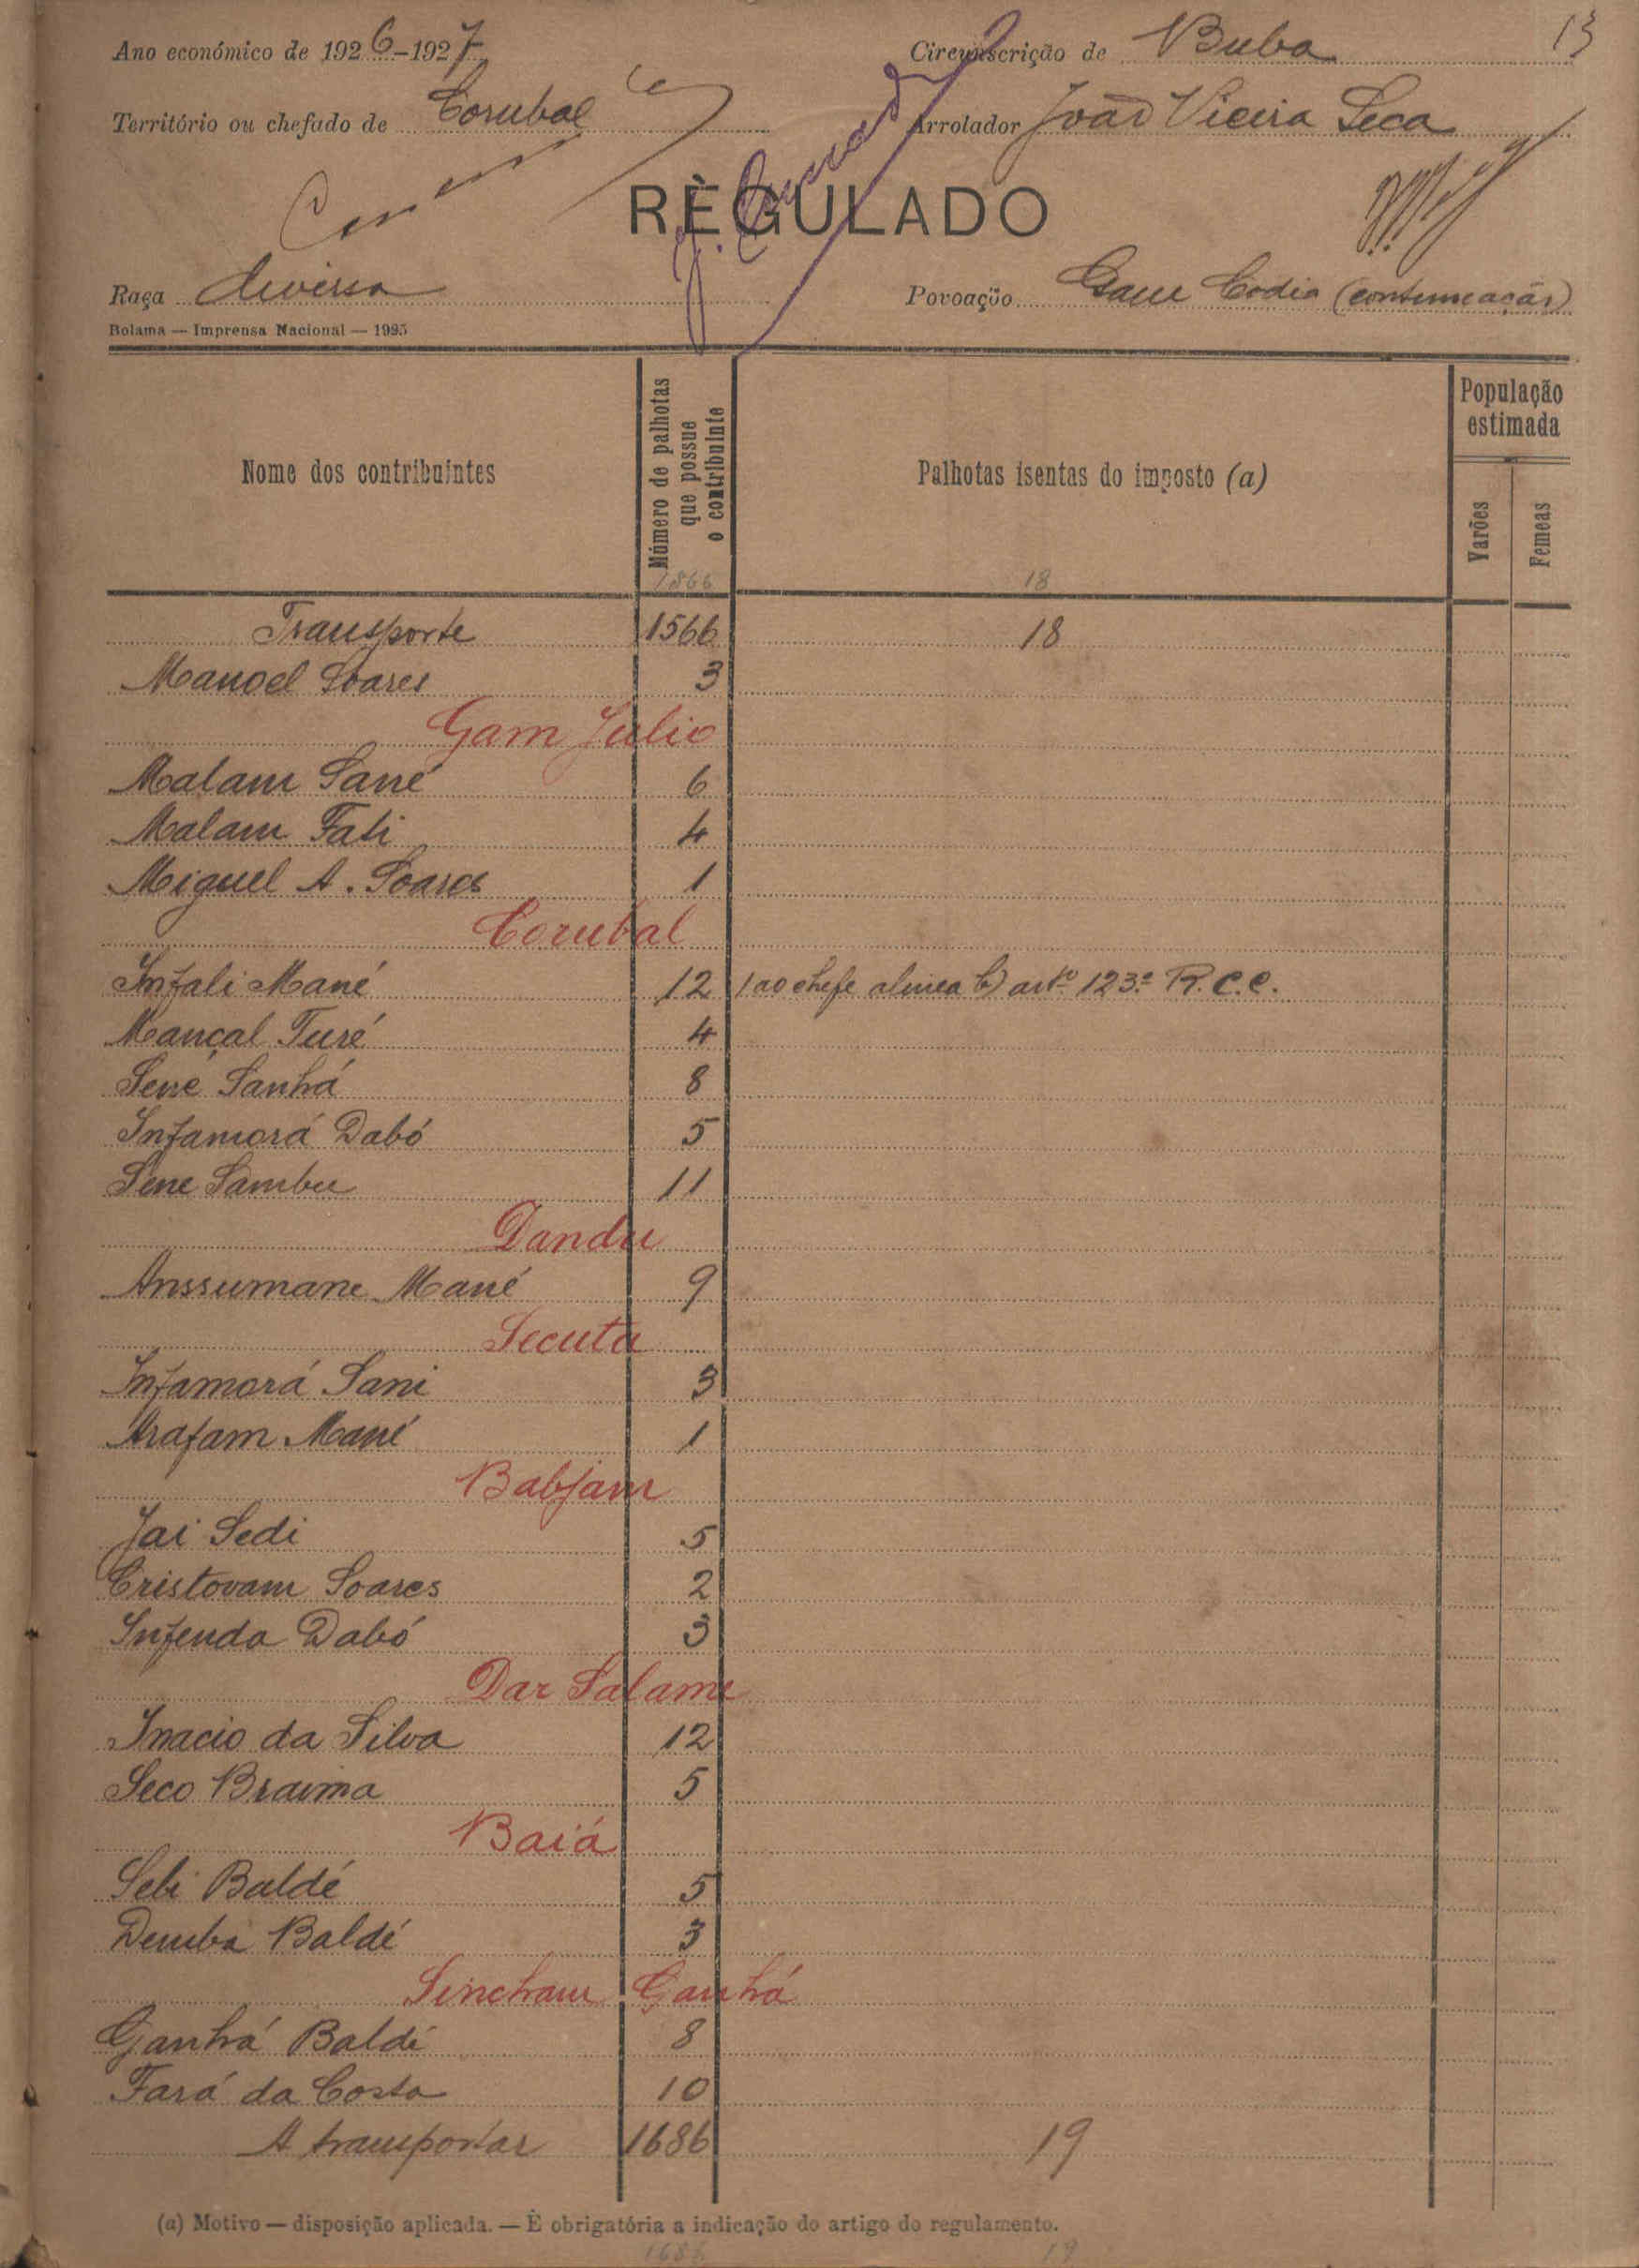 13
Ano económico de 1926-1927 Circunscrição de Buba
Território ou chefado de Corubal Arrolador João Vieira Seca
REGULADO
Raça diversa Povoação Gam Codia (continuação)
Bolama — Imprensa Nacional — 1925
Nome dos contribuintes Número de palhotas que possue o contribuinte Palhotas isentas do imposto (a) População estimada
Varões Femeas
1866 18
Transporte 1566 18
Manoel Soares 3
Gam Julio
Malam Sané 6
Malam Fati 4
Miguel A. Soares 1
Corubal
Infali Mané 12 1 ao chefe alinea b) artº 123º R.C.C.
Mançal Turé 4
Sene Sanhá 8
Infamorá Dabó 5
Sene Sambu 11
Dandu
Anssumane Mané 9
Secuta
Infamorá Sani 3
Arafam Mané 1
Babjam
Jai Sedi 5
Cristovam Soares 2
Infenda Dabó 3
Dar Salame
Inacio da Silva 12
Seco Braima 5
Baiá
Sebi Baldé 5
Demba Baldé 3
Sincham Ganhá
Ganhá Baldé 8
Fará da Costa 10
A transportar 1686 19
(a) Motivo — disposição aplicada. — É obrigatória a indicação do artigo do regulamento.
1686 19